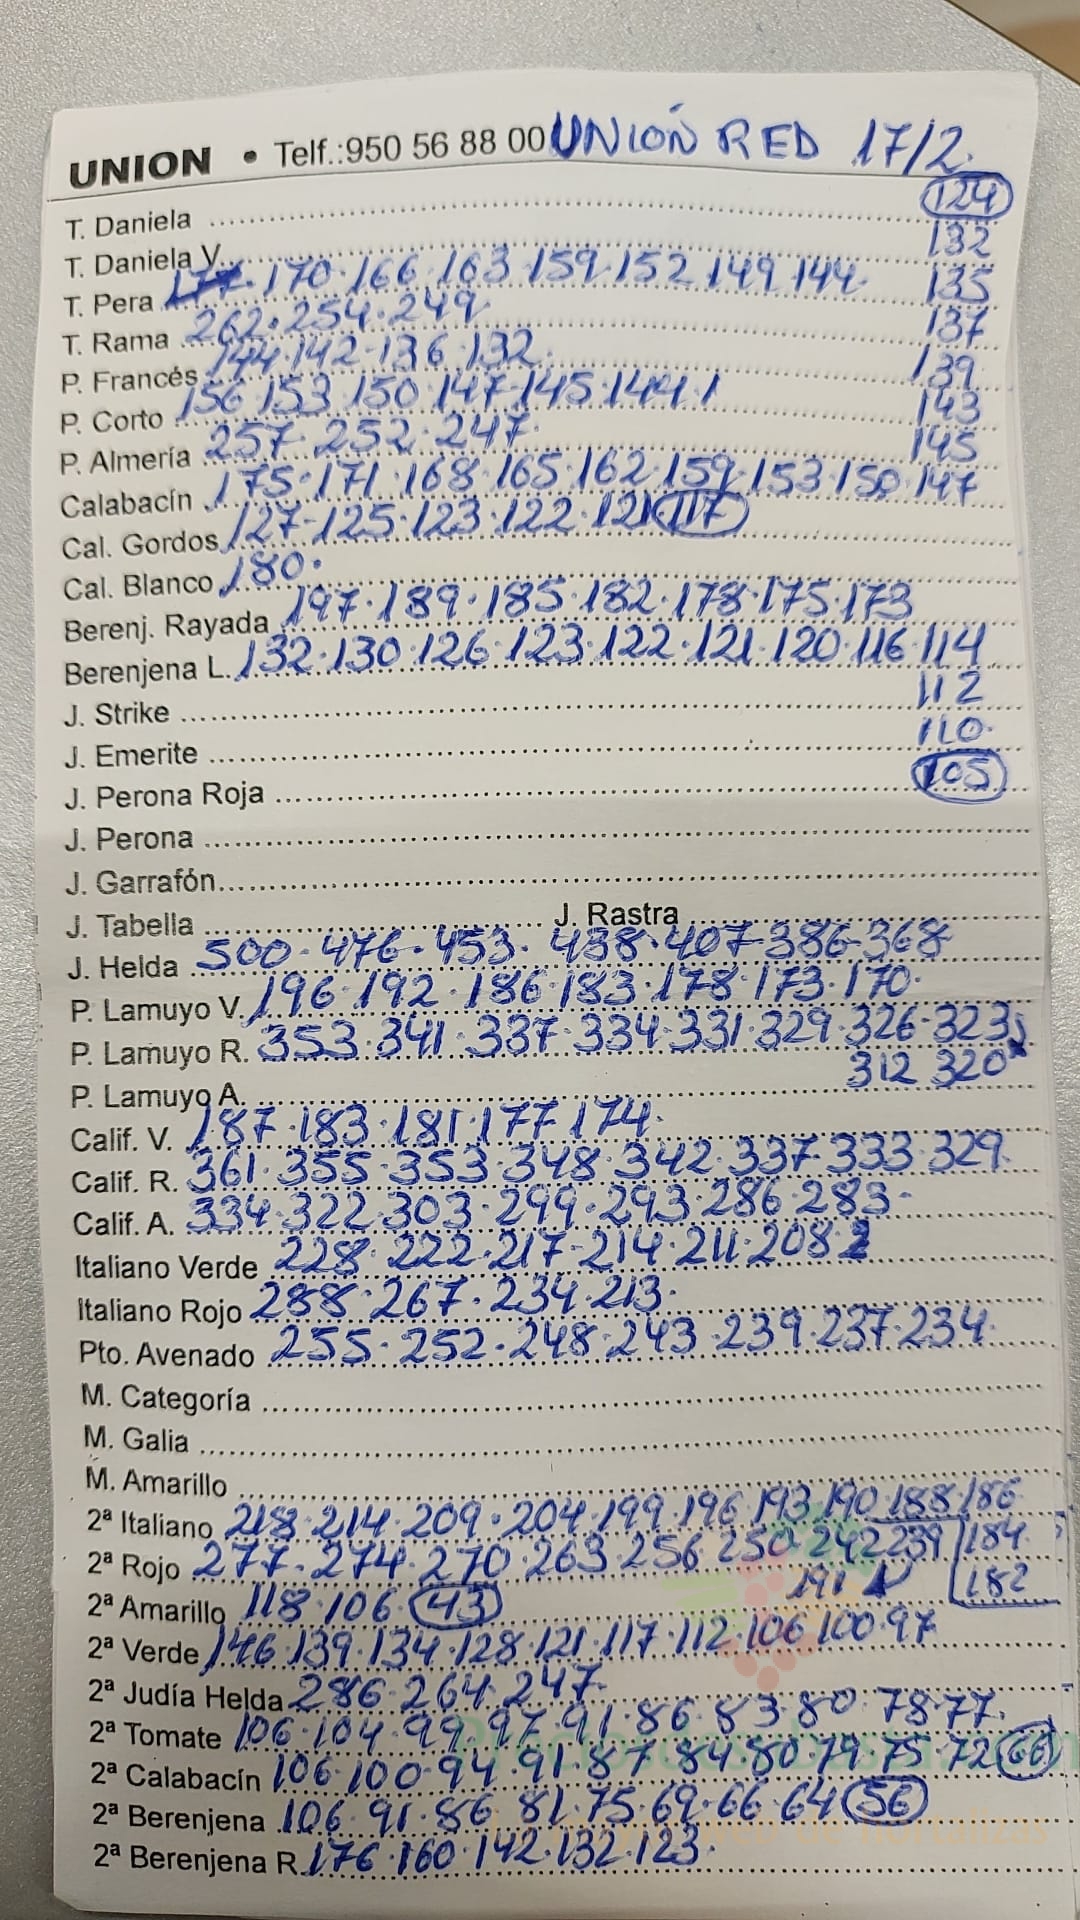 UNION • Telf.:950 56 88 00 UNIÓN RED 17/2.
124
T. Daniela
132
T. Daniela V. 177 · 170 · 166 · 163 · 159 · 152 149 144
135
T. Pera
T. Rama 262 · 254 · 249
137
P. Francés 144 · 142 · 136 · 132.
139
P. Corto 156 · 153 · 150 · 147 · 145 · 144
143
P. Almería 257 · 252 · 247
145
Calabacín 175 · 171 · 168 · 165 · 162 · 159 · 153 · 150 · 147
Cal. Gordos 127 · 125 · 123 · 122 · 121 117
Cal. Blanco 180.
Berenj. Rayada 197 · 189 · 185 · 182 · 178 · 175 · 173
Berenjena L. 132 · 130 · 126 · 123 · 122 · 121 · 120 · 116 · 114
112
J. Strike
110
J. Emerite
105
J. Perona Roja
J. Perona
J. Garrafón
J. Tabella J. Rastra
J. Helda 500 · 476 · 453 · 438 · 407 · 386 · 368
P. Lamuyo V. 196 · 192 · 186 · 183 · 178 · 173 · 170
P. Lamuyo R. 353 · 341 · 337 · 334 · 331 · 329 · 326 · 323
312 320
P. Lamuyo A.
Calif. V. 187 · 183 · 181 · 177 174
Calif. R. 361 · 355 · 353 · 348 · 342 · 337 · 333 · 329
Calif. A. 334 · 322 · 303 · 299 · 293 · 286 · 283
Italiano Verde 228 · 222 · 217 · 214 · 211 · 208
Italiano Rojo 288 · 267 · 234 · 213
Pto. Avenado 255 · 252 · 248 · 243 · 239 · 237 · 234
M. Categoría
M. Galia
M. Amarillo
2ª Italiano 218 · 214 · 209 · 204 · 199 · 196 · 193 · 190 188 186
184
182
2ª Rojo 277 · 274 · 270 · 263 256 250 242 239
191
2ª Amarillo 118 · 106 · 43
2ª Verde 146 · 139 · 134 · 128 · 121 · 117 · 112 · 106 100 · 97
2ª Judía Helda 286 · 264 · 247
2ª Tomate 106 · 104 · 99 · 97 · 91 · 86 · 83 · 80 · 78 · 77
2ª Calabacín 106 · 100 · 94 · 91 · 87 · 84 · 80 · 79 · 75 · 72 66
2ª Berenjena 106 · 91 · 86 · 81 · 75 · 69 · 66 · 64 56
de hortalizas
2ª Berenjena R. 176 · 160 · 142 · 132 · 123